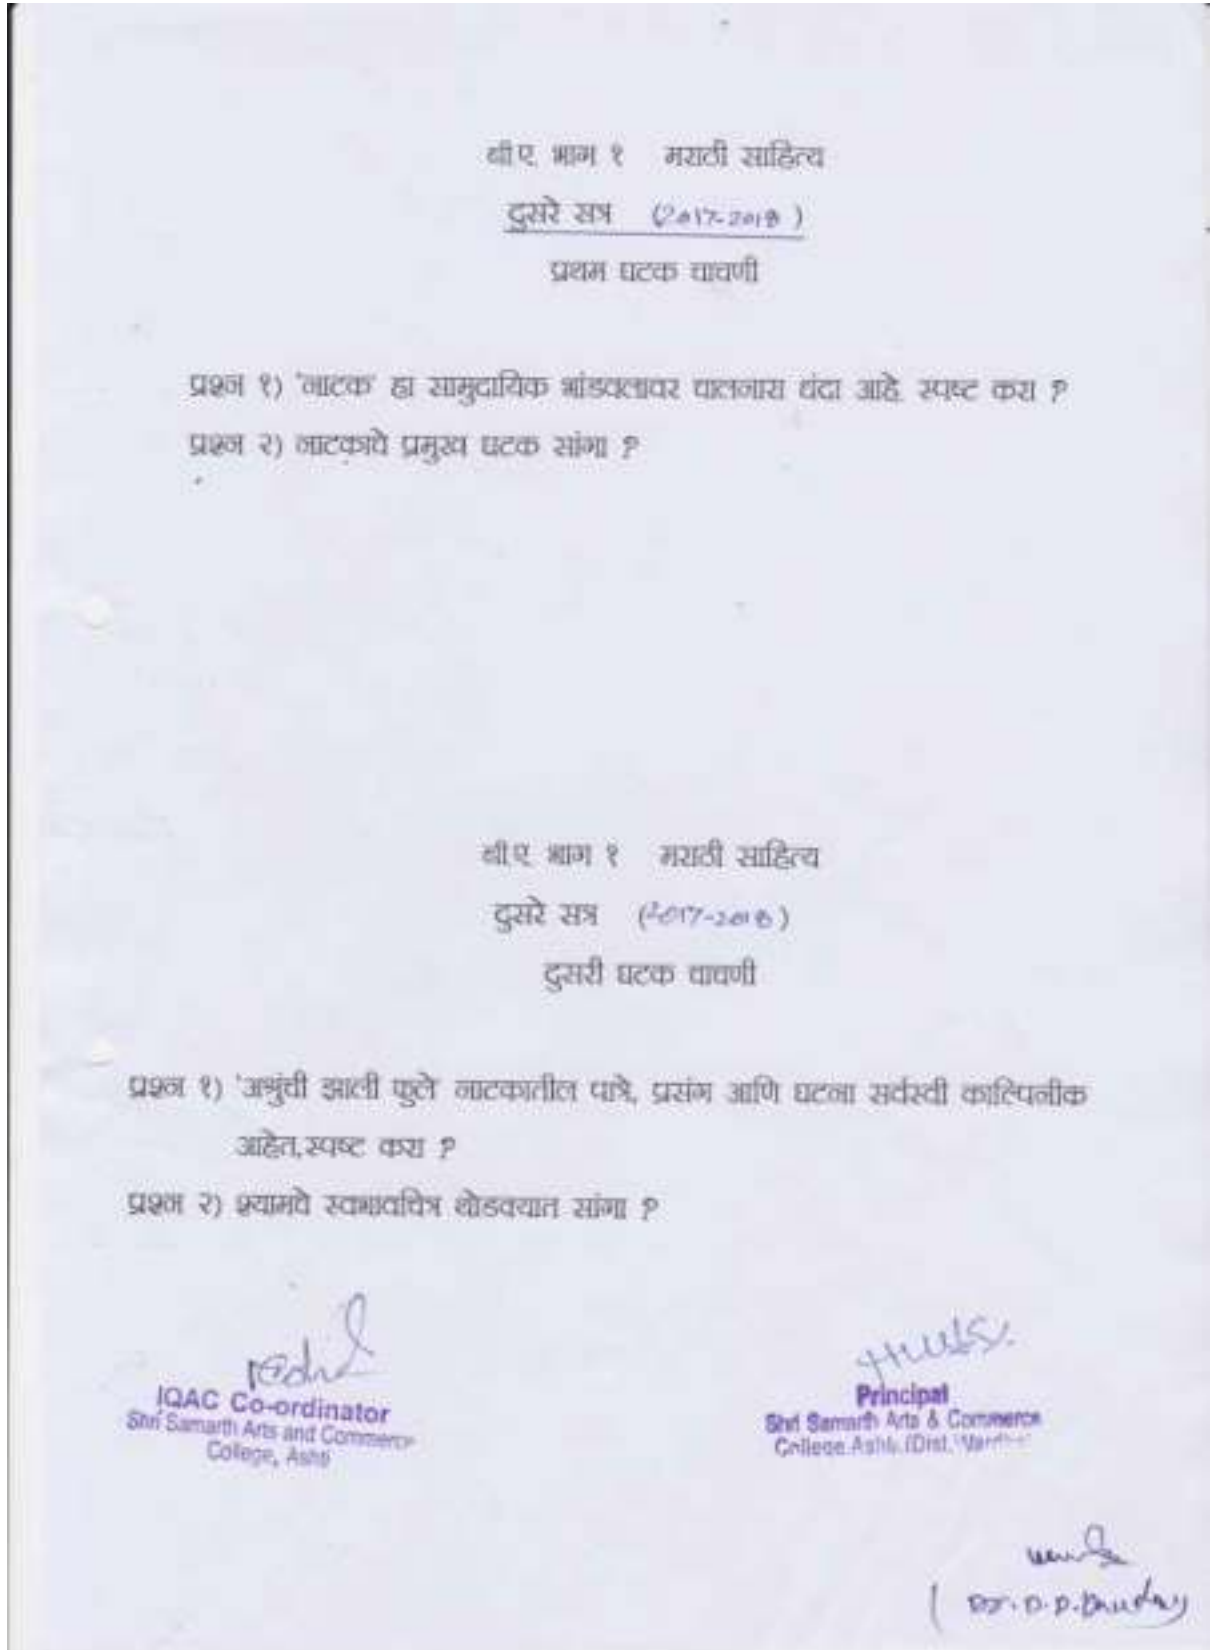 बी.ए. भाग १ मराठी साहित्य
दुसरे सत्र (2017-2018)
प्रथम घटक चाचणी
प्रश्न १) 'नाटक' हा सामुदायिक भांडवलावर चालनारा धंदा आहे. स्पष्ट करा ?
प्रश्न २) नाटकाचे प्रमुख घटक सांगा ?
बी.ए. भाग १ मराठी साहित्य
दुसरे सत्र (2017-2018)
दुसरी घटक चाचणी
प्रश्न १) 'अश्रुंची झाली फुले' नाटकातील पात्रे, प्रसंग आणि घटना सर्वस्वी काल्पिनीक
आहेत.स्पष्ट करा ?
प्रश्न २) श्यामचे स्वभावचित्र थोडक्यात सांगा ?
IQAC Co-ordinator
Shri Samarth Arts and Commerce
College, Ashti
Principal
Shri Samarth Arts & Commerce
College Ashti (Dist.